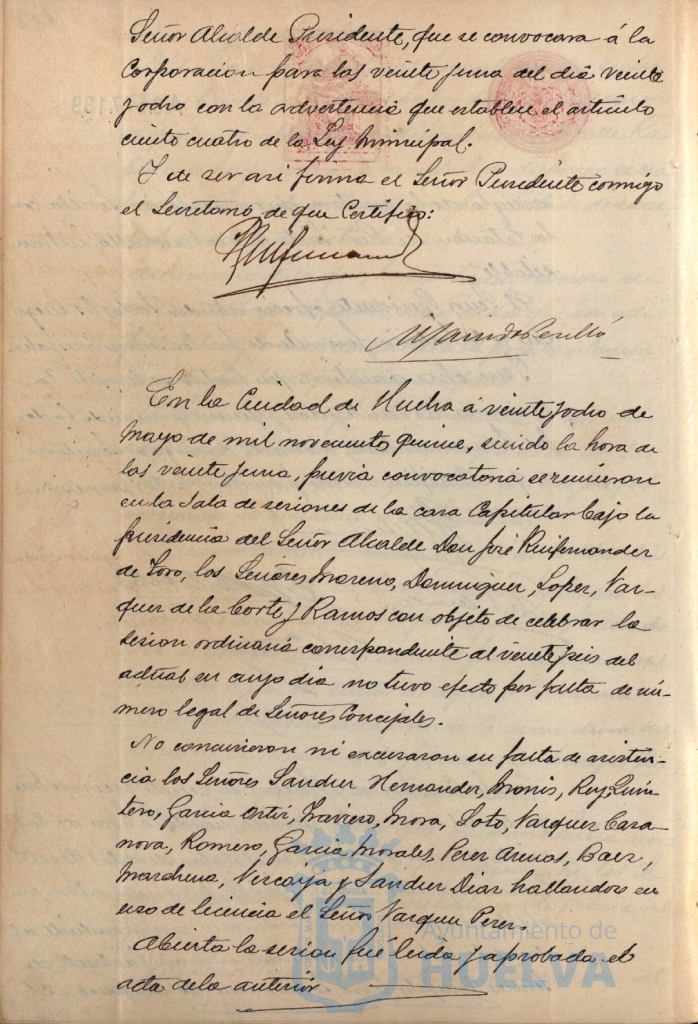 Señor Alcalde Presidente, que se convocara á la
Corporacion para las veinte y una del dia veinte
y ocho con la advertencia que establece el articulo
ciento cuatro de la Ley Municipal.
Y de ser asi firma el Señor Presidente conmigo
el Secretario de que Certifico:
En la Ciudad de Huelva á veinte y ocho de
Mayo de mil novecientos quince, siendo la hora de
las veinte y una, previa convocatoria se reunieron
en la Sala de sesiones de la casa Capitular bajo la
presidencia del Señor Alcalde Don José Ruifernandez
de Toro, los Señores Moreno, Dominguez, Lopez, Vaz-
quez de la Corte y Ramos con objeto de celebrar la
sesion ordinaria correspondiente al veinte y seis del
actual en cuyo dia no tuvo efecto por falta de nú-
mero legal de Señores Concejales.
No concurrieron ni excusaron su falta de asisten-
cia los Señores Sanchez Hernandez, Monis, Rey, Quin-
tero, Garcia Ortiz, Travieso, Mora, Soto, Vazquez Casa-
nova, Romero, Garcia Morales, Perez Arenas, Baez,
Marchena, y Sanchez Diaz hallandose en
uso de licencia el Señor Vazquez Perez.
Abierta la sesion fué leida y aprobada el
acta de la anterior
Ayuntamiento de
HUELVA